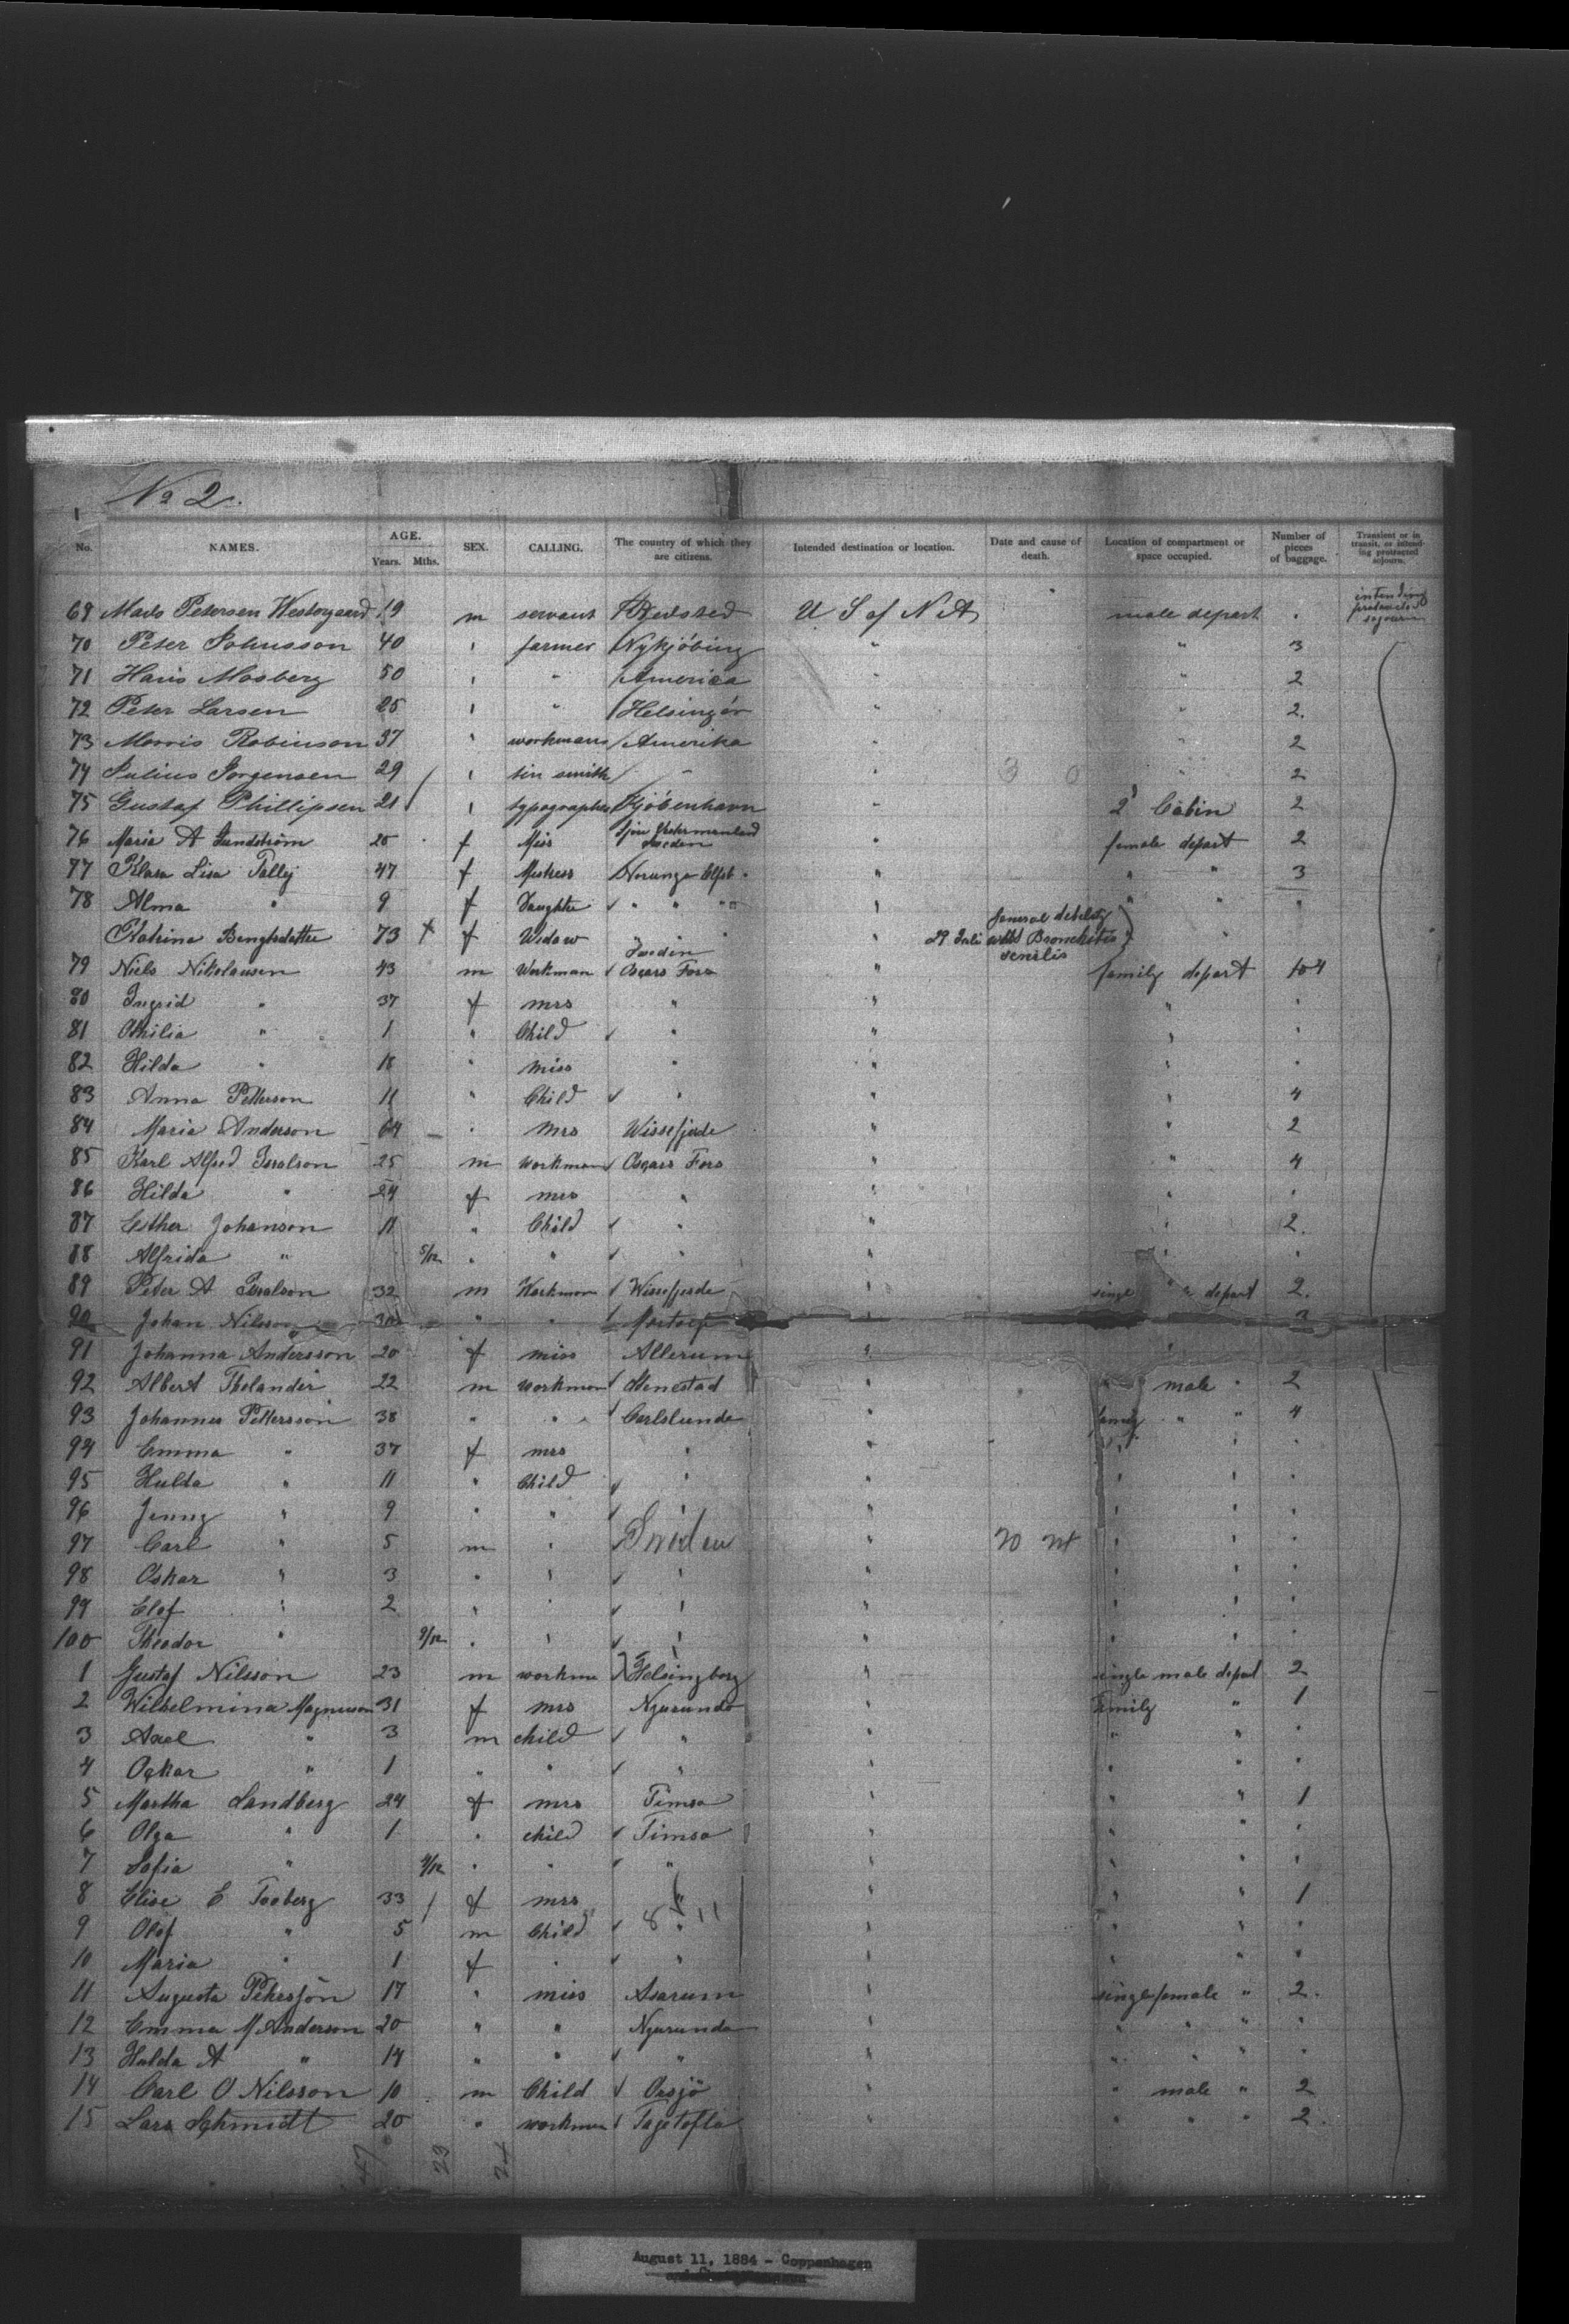 No 2.
No. NAMES. AGE. Years. Mths. SEX. CALLING. The country of which they are citizens. Intended destination or location. Date and cause of death. Location of compartment or space occupied. Number of pieces of baggage. Transient or in transit, or intending protracted sojourn.
69 Mads Petersen Westergaard 19 m servant U S of N A male depart intending protracted sojourn
70 Peter Johnsson 40 " farmer Nykjöbing " " 3
71 Hans Mosberg 50 " " America " " 2
72 Peter Larsen 25 " " Helsingör " " 2.
73 Morris Robinson 37 " workmans Amerika " " 2
74 Julius Jorgensen 29 " tin smith " " 3 0 " 2
75 Gustaf Phillipsen 21 " typographer Kjöbenhavn " 2' Cabin 2
76 Maria A Sundström 20 f Miss Sweden " female depart 2
77 Klara Lisa Tally 47 f Mistress Norunga Elfsb. " " " 3
78 Alma " 9 f Daughter " " " " " " "
Katrina Bengtsdatter 73 + f Widow " " " 29 Juli general debility with Bronchitis senilis "
79 Niels Nikolausen 43 m Workman Sweden Oscars Fors " family depart 104
80 Ingrid " 37 f mrs " " " "
81 Othilia " 1 " Child " " " "
82 Hilda " 18 " miss " " " "
83 Anna Petterson 11 " Child " " " 4
84 Maria Anderson 64 " Mrs Wissefjerde " " 2
85 Karl Alfred Isralson 25 m workman Oscars Fors " " 4
86 Hilda " 24 f mrs " " " "
87 Esther Johanson 11 " Child " " " 2.
88 Alfrida " 5/12 " " " " " "
89 Peter A Isralson 32 m Workman Wissefjerde " single " depart 2.
90 Johan Nilsson 30 " " "
91 Johanna Andersson 20 f miss Allerum " "
92 Albert Thelander 22 m workman Stenestad " " male " 2
93 Johannes Pettersson 38 " " Carlslunda " family " " 4
94 Emma " 37 f mrs " " " " "
95 Hulda " 11 " Child " " " " "
96 Jenny " 9 " " " " " " "
97 Carl " 5 m " Sweden " 20 24 " " "
98 Oskar " 3 " " " " " " "
99 Elof " 2 " " " " " " "
100 Theodor " 9/12 " " " " " " "
1 Gustaf Nilsson 23 m workman Helsingborg " single male depart 2
2 Wilhelmina Magnuson 31 f mrs Njurunda " Family " 1
3 Axel " 3 m child " " " " "
4 Oskar " 1 " " " " " " "
5 Martha Landberg 24 f mrs Timsa " " " 1
6 Olga " 1 " child Timsa " " " "
7 Sofia " " " " " " " "
8 Elise E Tooberg 33 f mrs " " " " 1
9 Olof " 5 m Child " 8 11 " " " "
10 Maria " 1 f " " " " " "
11 Augusta Pehrsson 17 " miss Asarum " single female " 2.
12 Emma M Anderson 20 " " Njurunda " " " " "
13 Hulda A " 14 " " " " " " " "
14 Carl O Nilsson 10 m Child Ousjö " " male " 2
15 Lars Schmidt 20 " workman Tagetofta " " " " 2.
47 23 24
August 11, 1884 - Coppenhagen